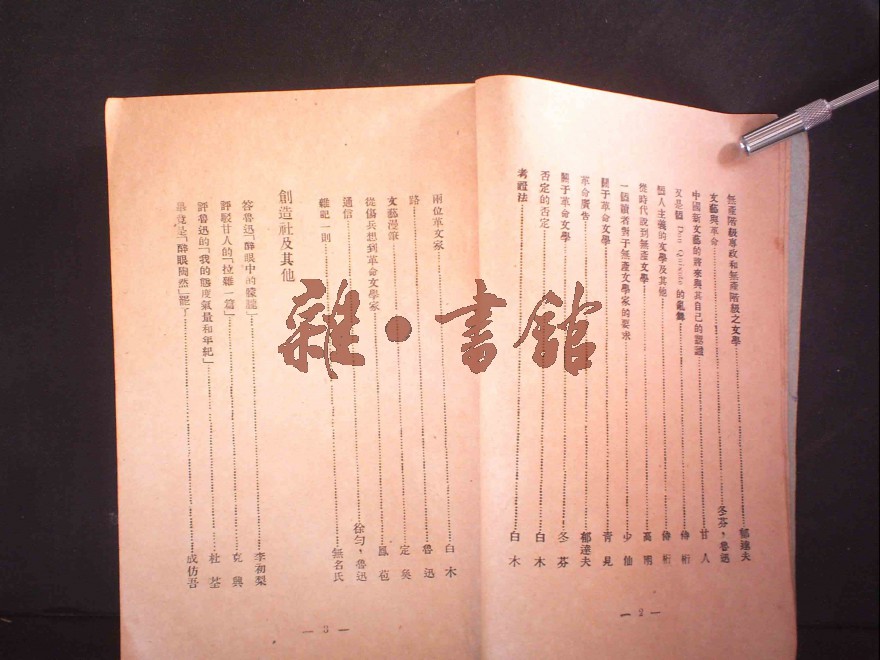 無產階級專政和無產階級之文學……郁達夫
文藝與革命……冬芬，魯迅
中國新文藝的將來與其自己的認識……甘人
又是個 Don Quixote 的亂舞……侍桁
個人主義的文學及其他……侍桁
從時代說到無產文學……高明
一個讀者對于無產文學家的要求……少仙
關于革命文學……青見
革命廣告……郁達夫
關于革命文學……冬芬
否定的否定……白木
考證法……白木
— 2 —
兩位革文家……白木
路……魯迅
文藝漫筆……定奐
從傷兵想到革命文學家……鳳苞
通信……徐勻，魯迅
雜記一則……無名氏
創造社及其他
答魯迅「醉眼中的朦朧」……李初梨
評駁甘人的「拉雜一篇」……克興
評魯迅的「我的態度氣量和年紀」……杜荃
畢竟是「醉眼陶然」罷了……成仿吾
— 3 —
雜·書館